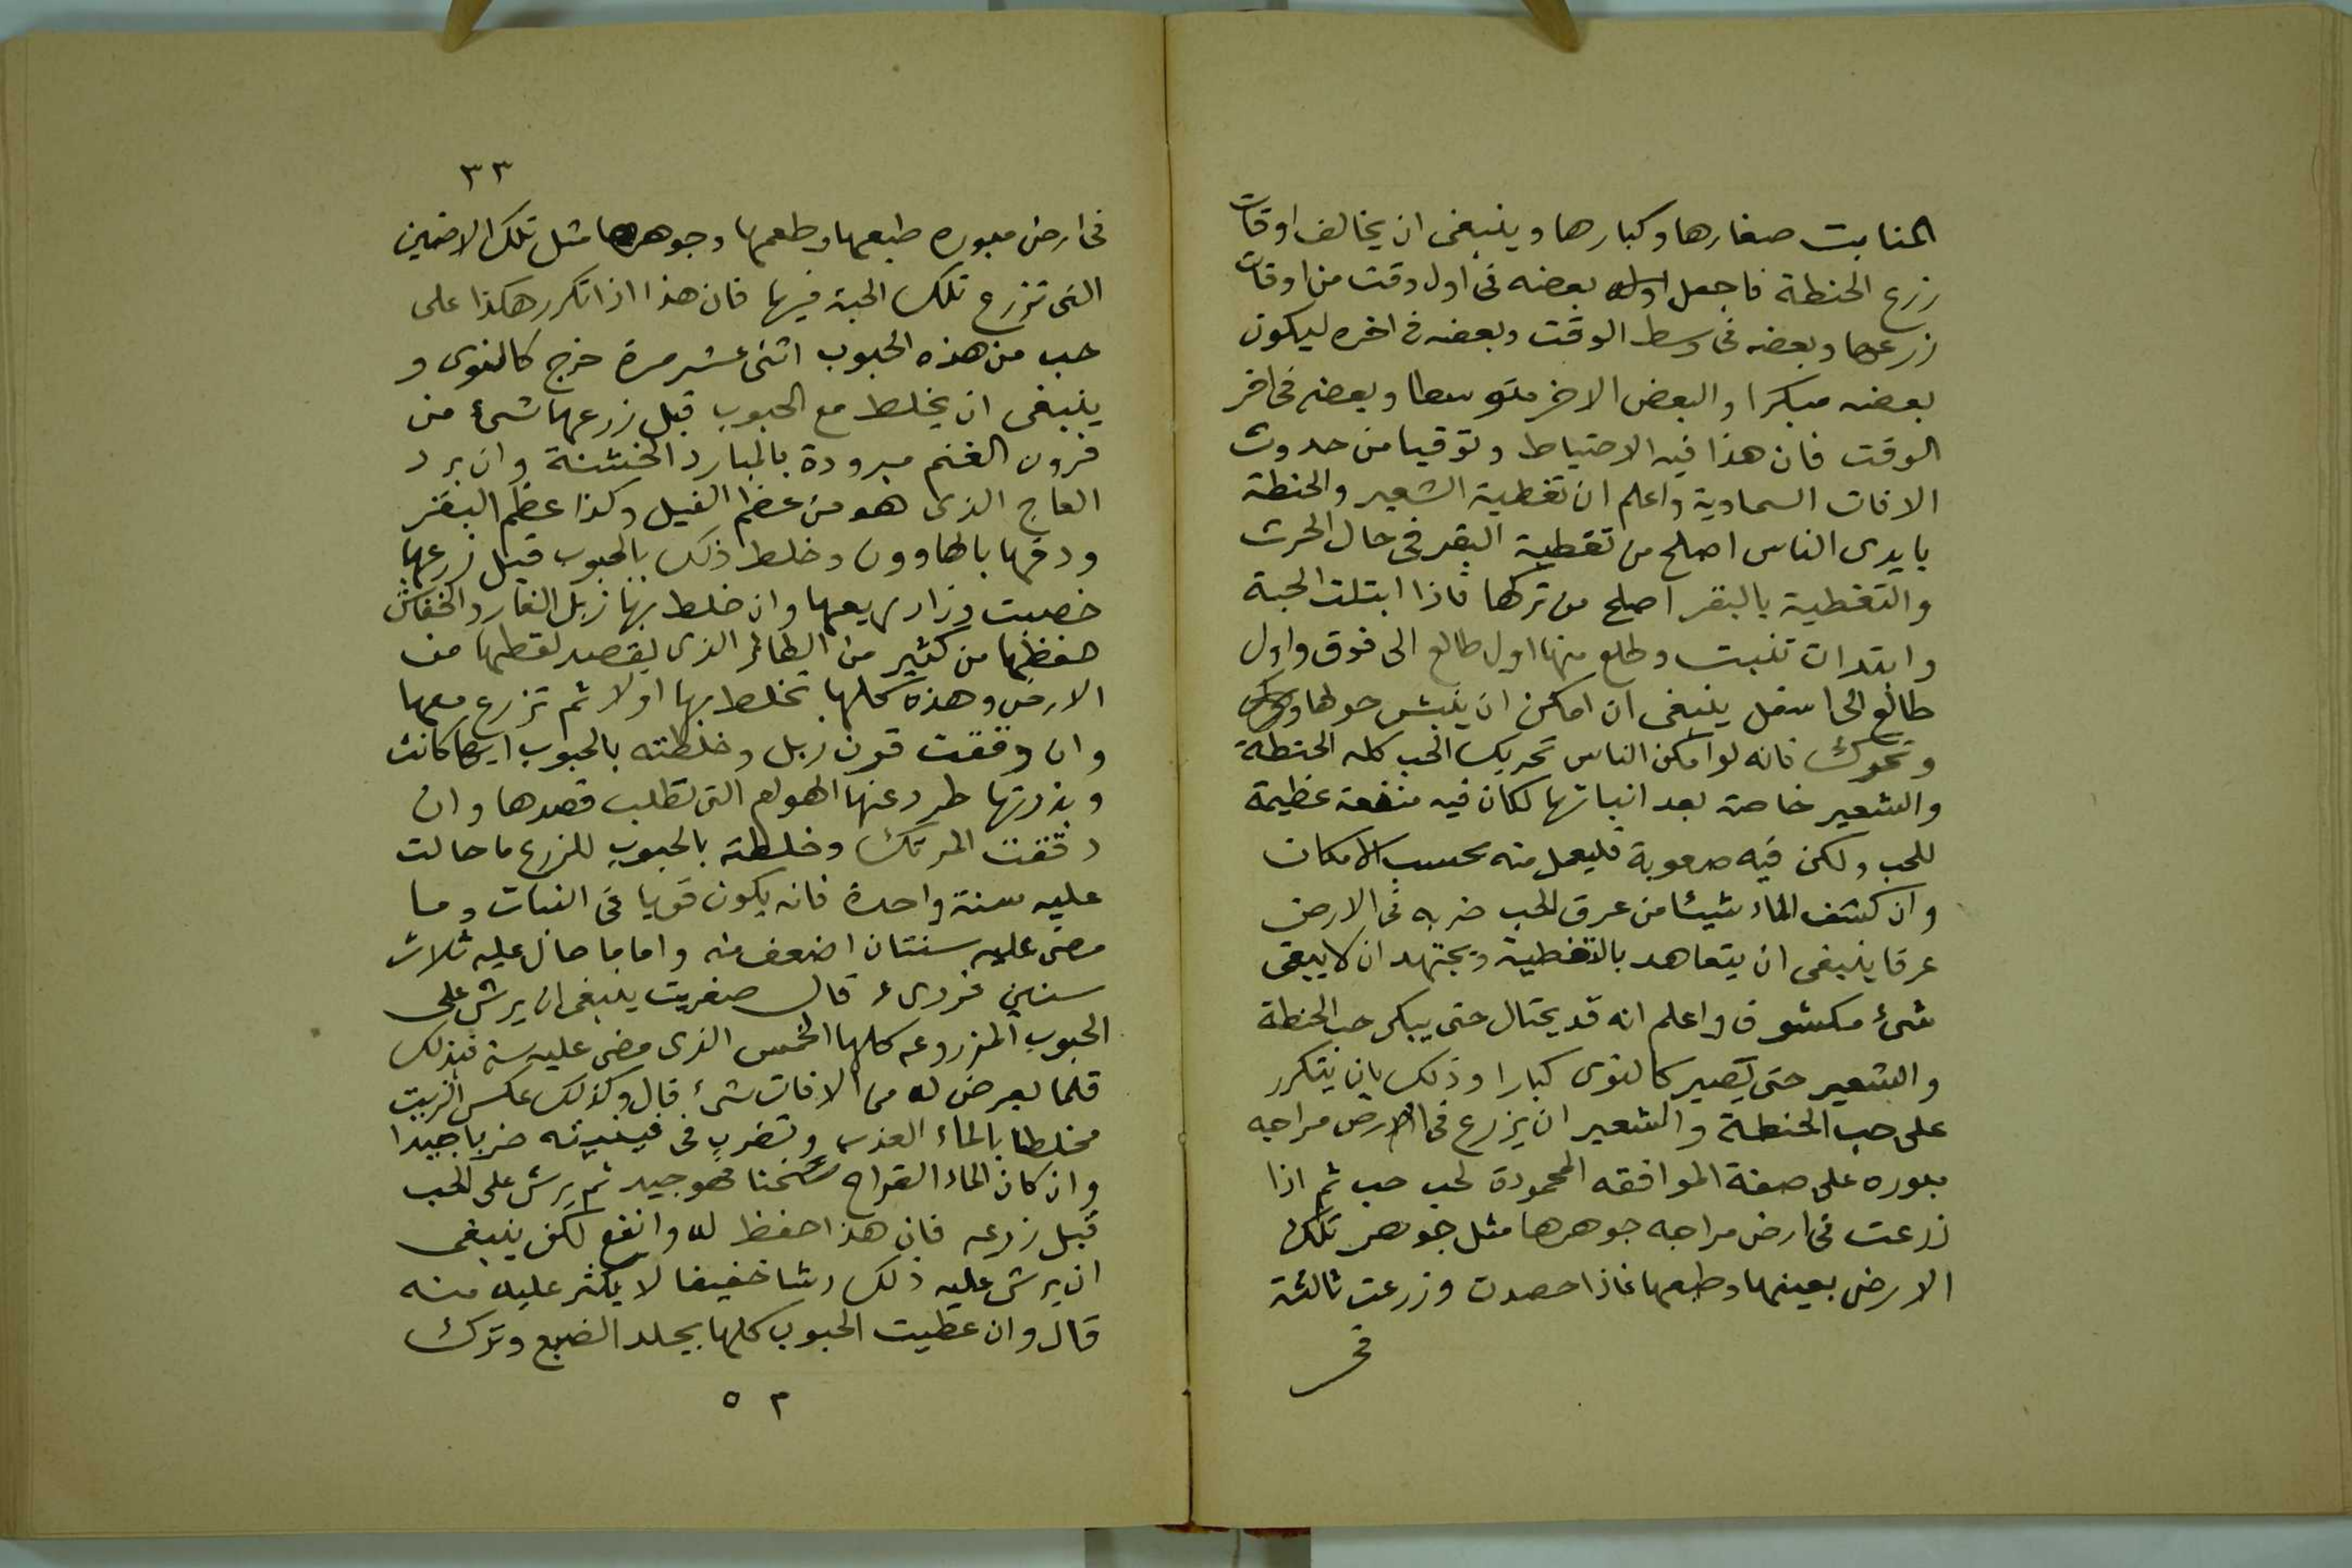 المنابت صغارها وكبارها وينبغى ان يخالف اوقات
زرع الحنطة فاجعل بعضه فى اول وقت من اوقات
زرعها وبعضه فى وسط الوقت وبعضه فى اخره ليكون
بعضه مبكرا والبعض الاخر متوسطا وبعضه فى اخر
الوقت فان هذا فيه الاحتياط وتوقيا من حدوث
الافات السماوية واعلم ان تغطية الشعير والحنطة
بايدى الناس اصلح من تغطية البقر فى حال الحرث
والتغطية بالبقر اصلح من تركها فاذا ابتلت الحبة
وابتدات تنبت وطلع منها اول طالع الى فوق واول
طالع الى اسفل ينبغى ان امكن ان ينبش حولها
وتحرك فانه لو امكن الناس تحريك الحب كله الحنطة
والشعير خاصة بعد انباتها لكان فيه منفعة عظيمة
للحب ولكن فيه صعوبة فليعمل منه بحسب الامكان
وان كشف الماء شيئا من عرق الحب ضربه فى الارض
عرقا ينبغى ان يتعاهد بالتغطية ويجتهد ان لا يبقى
شىء مكشوف واعلم انه قد يحتال حتى يبكى حب الحنطة
والشعير حتى يصير كالنوى كبارا وذلك بان يتكرر
على حب الحنطة والشعير ان يزرع فى الارض مراجه
بلوره على صفة الموافقه المحمودة لحب حب ثم اذا
زرعت فى ارض مراجه جوهرها مثل جوهر تلك
الارض بعينها وطبعها فاذا حصدت وزرعت ثالثة
فى
٣٣
فى ارض مبوره طبعها وطعمها وجوهرها مثل تلك الارضين
التى تزرع تلك الحبة فيها فان هذا اذا تكرر هكذا على
حب من هذه الحبوب اثنى عشر مرة خرج كالنوى و
ينبغى ان يخلط مع الحبوب قبل زرعها شىء من
قرون الغنم مبرودة بالمبارد الخشنة وان برد
العاج الذى هو من عظم الفيل وكذا عظم البقر
ودقها بالهاوون وخلط ذلك بالحبوب قبل زرعها
خصبت وزاد ريعها وان خلط بها زبل الفار والخفاش
حفظها من كثير من الطائر الذى يقصد لقطها من
الارض وهذه كلها تخلط بها اولا ثم تزرع معها
وان دققت قرن ايل وخلطته بالحبوب ايها كانت
وبذرتها طرد عنها الهوام التى تطلب قصدها وان
دققت المرتك وخلطته بالحبوب للزرع ما حالت
عليه سنة واحدة فانه يكون قويا فى النبات وما
مضى عليه سنتان اضعف منه واما ما حال عليه ثلاث
سنين فردىء قال صغريت ينبغى ان يرش على
الحبوب المزروعه كلها الخمس الذى مضى عليه سنة فبذلك
قلما يعرض له من الافات شىء قال وكذلك عكس الزيت
مخلطا بالماء العذب وتضرب فى قنينته ضربا جيدا
وان كان الماء القراح سخنا فهو جيد ثم يرش على الحب
قبل زرعه فان هذا احفظ له وانفع لكن ينبغى
ان يرش عليه ذلك رشا خفيفا لا يكثر عليه منه
قال وان غطيت الحبوب كلها بجلد الضبع وترك
٥ ٣